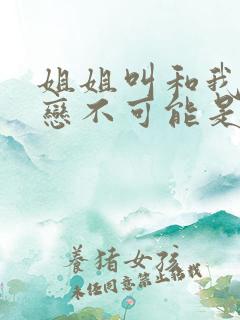 姐姐叫和我
戀不可能是
養猪女孩
未经同意禁止转载